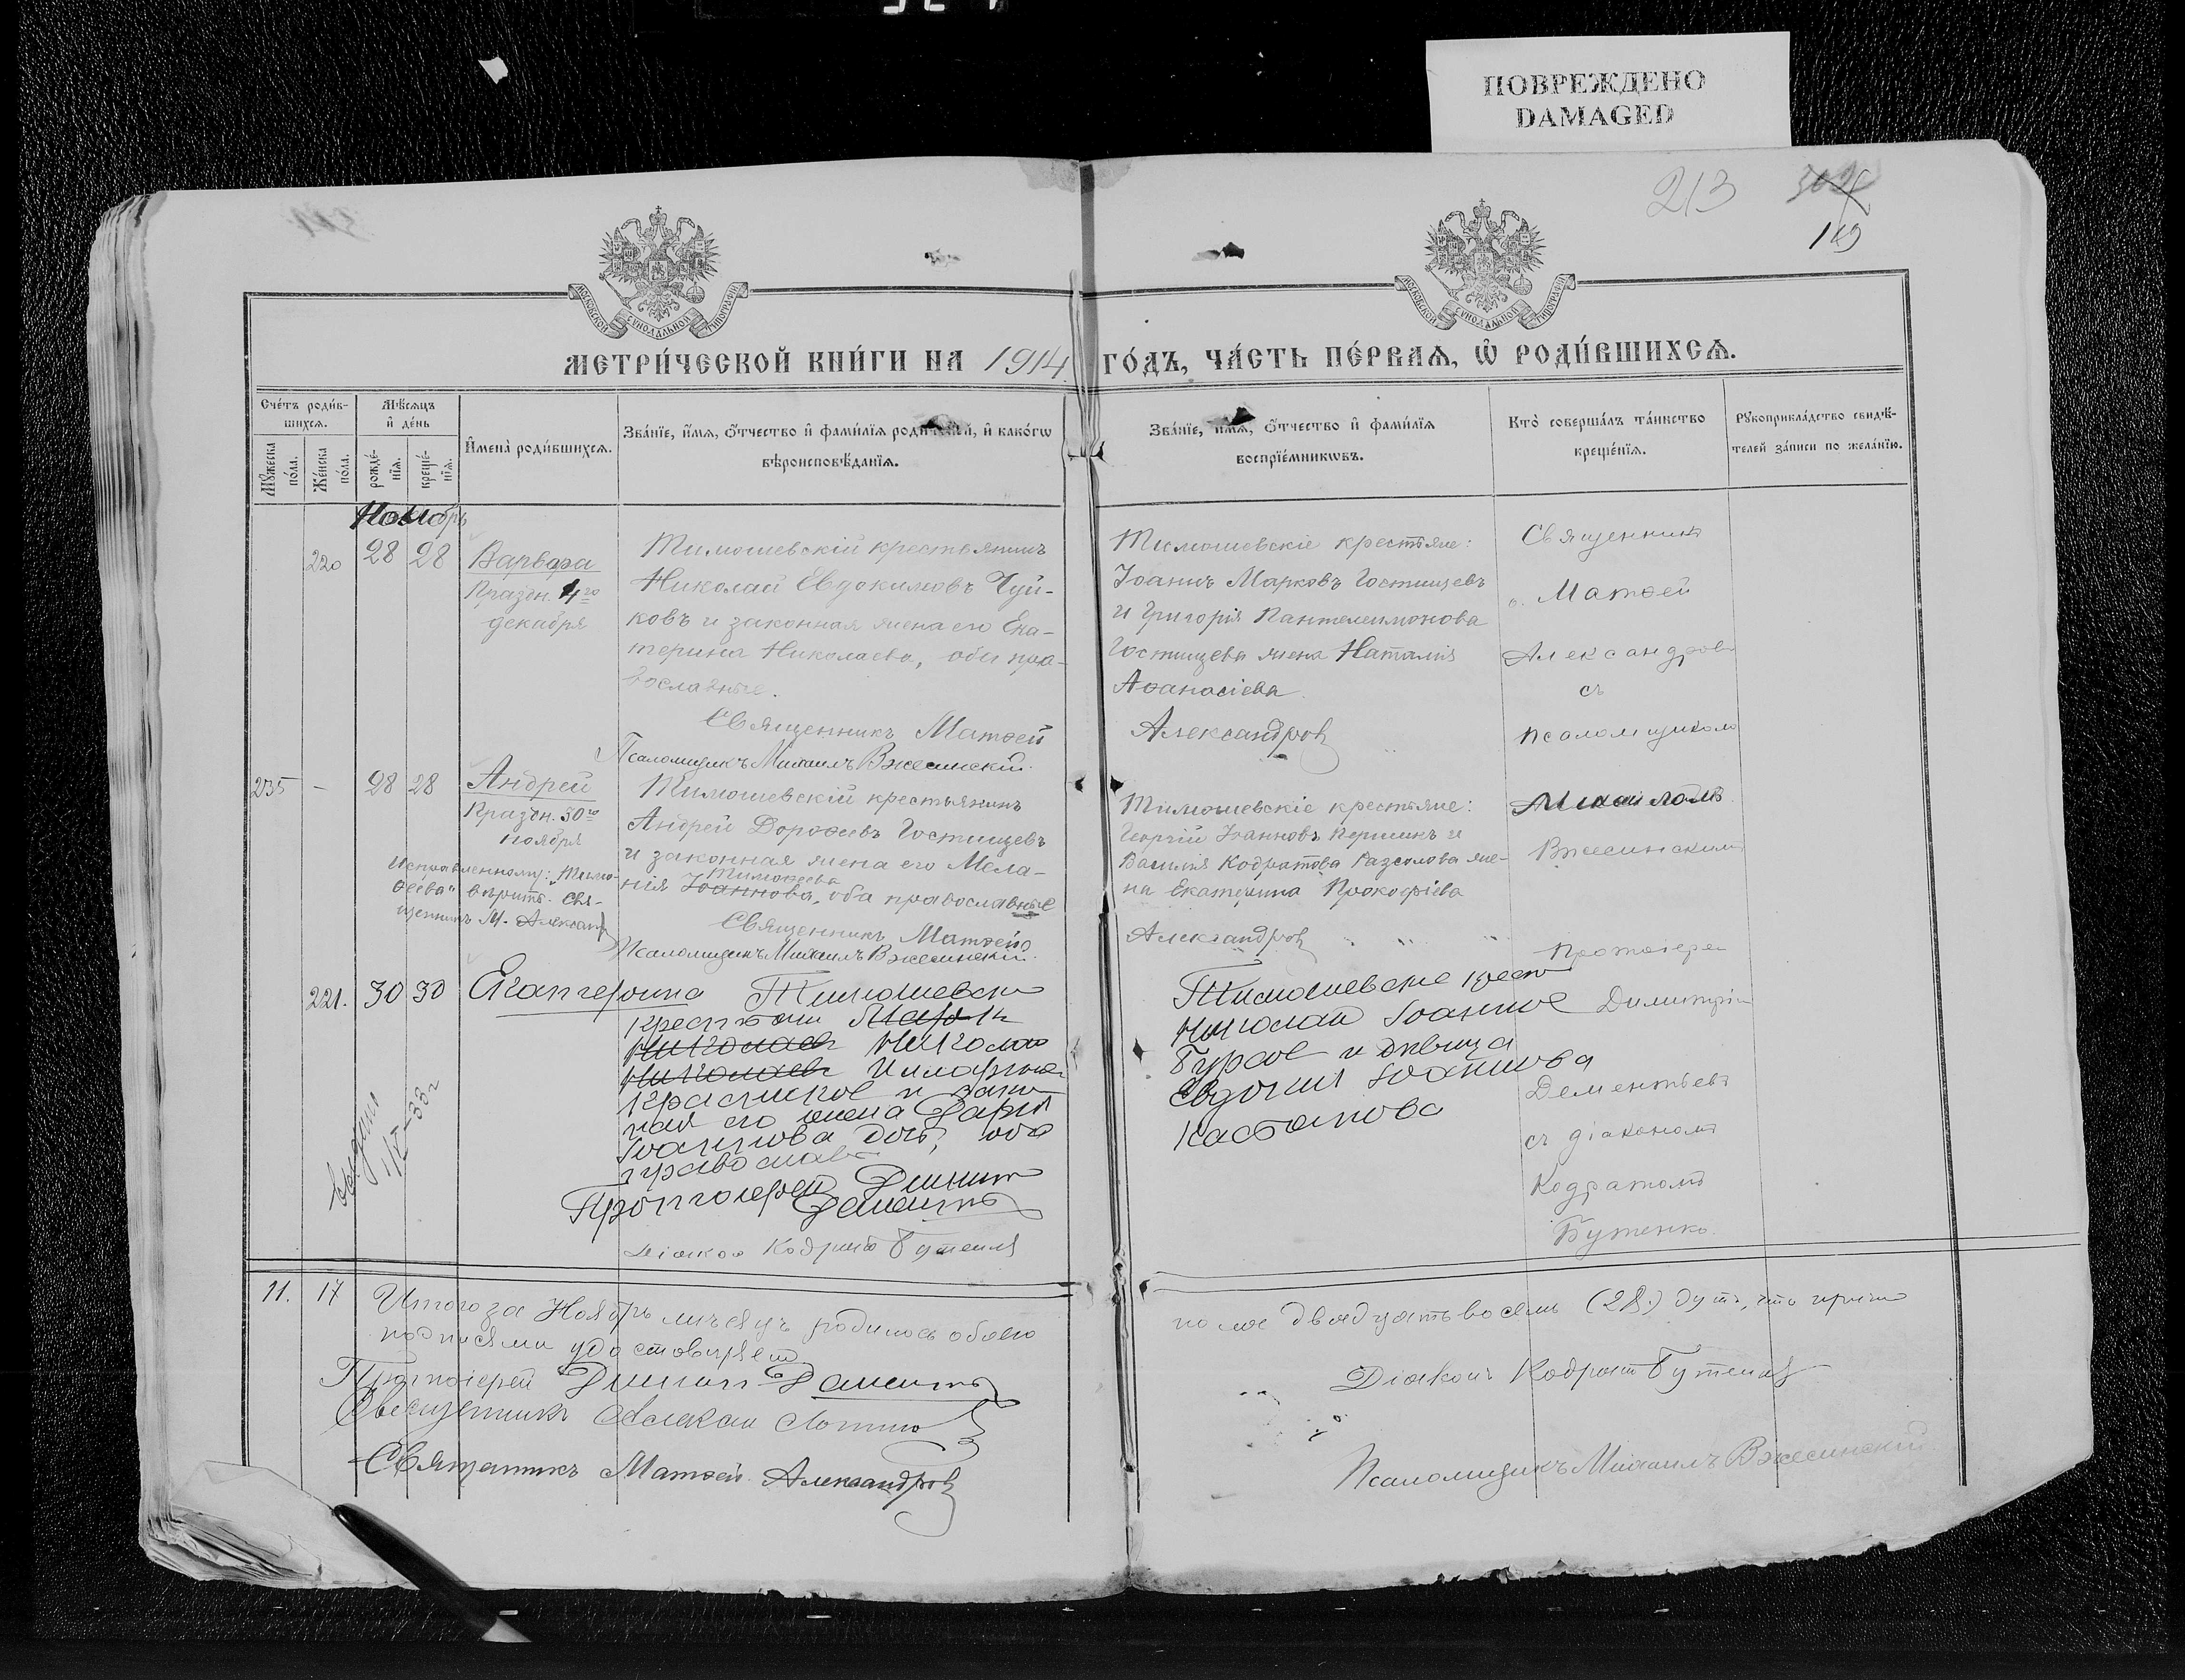 ПОВРЕЖДЕНО
DAMAGED
213
МОСКОВСКОЙ СѴНОДАЛЬНОЙ ТИПОГРАФІИ
МОСКОВСКОЙ СѴНОДАЛЬНОЙ ТИПОГРАФІИ
МЕТРИ́ЧЕСКОЙ КНИ́ГИ НА 1914 ГО́ДЪ, ЧА́СТЬ ПЕ́РВАѦ, Ѽ РОДИ́ВШИХСѦ.
Сче́тъ роди́в-
шихсѧ.
Мѣ́сѧцъ
и҆ де́нь
Мꙋ́жеска по́ла.
Же́нска по́ла.
рожде́-нїѧ.
креще́-нїѧ.
И҆мена̀ роди́вшихсѧ.
Зва́нїе, и҆́мѧ, ѻ҆́тчество и҆ фами́лїѧ роди́телей, и҆ како́гѡ
вѣроисповѣ́данїѧ.
Зва́нїе, и҆́мѧ, ѻ҆́тчество и҆ фами́лїѧ
воспрїе́мникѡвъ.
Кто̀ соверша́лъ та́инство
креще́нїѧ.
Рꙋкоприкла́дство свидѣ́-
телей за́писи по жела́нїю.
Ноябрь
220 28 28 Варвара
Праздн. 4го
декабря
Тимошевскій крестьянинъ
Николай Евдокимовъ Чуй-
ковъ и законная жена его Ека-
терина Николаева, оба пра-
вославные.
Священникъ Матѳей
Псаломщикъ Михаилъ Вжесинскій.
Тимошевскіе крестьяне:
Іоаннъ Марковъ Гостищевъ
и Григорія Пантелеимонова
Гостищева жена Наталія
Аѳанасіева
Александровъ
Священникъ
Матѳей
Александровъ
съ
псаломщикомъ
235 – 28 28 Андрей
Праздн. 30го
ноября
Исправленному: "Тимо-
ѳеева" вѣрить. Свя-
щенникъ М. Александр
Тимошевскій крестьянинъ
Андрей Дороѳеевъ Гостищевъ
и законная жена его Мела-
Тимоѳеева
нія Іоаннова, оба православные
Священникъ Матѳей
Псаломщикъ Михаилъ Вжесинскій.
Тимошевскіе крестьяне:
Георгій Іоанновъ Першинъ и
Василія Кодратова Разсолова же-
на Екатерина Прокофіева
Александровъ
Михаиломъ
Вжесинскимъ
221. 30 30 Екатерина
Тимошевски
Николаев Никола
Николаев
жена Дарія
Іоаннова, оба
православн
Протоіерей Димит
Демент
Діакон Кодратъ Бутенко
Тимошевские крест
Николай Іоаннов
и дѣвица
Евдокия Іоаннова
Протоіерей
Димитрій
Дементьевъ
съ діакономъ
Кодратомъ
Бутенко.
11. 17 Итого за Ноябрь мѣсяцъ родилось обоего
пола двадцать восемь (28) душъ, что
подписями удостовѣряем
Протоіерей Димит Демент
Діаконъ Кодрат Бутенко
Священникъ
Священникъ Матѳей Александровъ
Псаломщикъ Михаилъ Вжесинскій